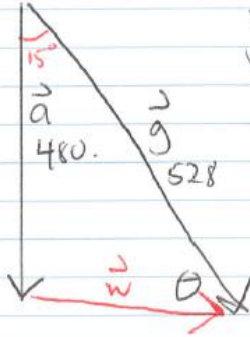 15°
a⃗
g⃗
480.
528
w⃗
θ